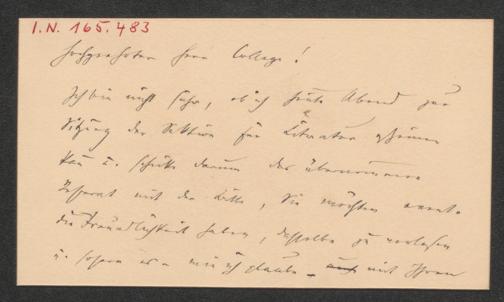 I.N. 165.483
Hochgeehrter Herr College!
Ich bin nicht sicher, ob ich heute Abend zur
Sitzung der Sektion für Literatur erscheinen
kann u. schicke darum das übernommene
Referat mit der Bitte, Sie möchten event.
die Freundlichkeit haben, dasselbe zu verlesen
u. sofern es wie ich glaube mit Ihren